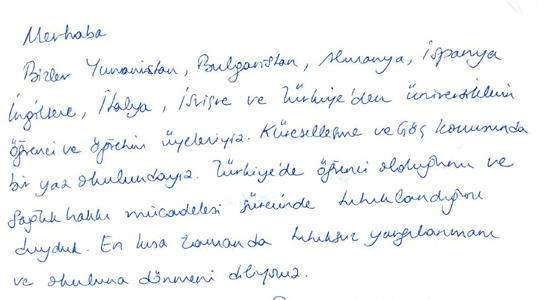 Merhaba
Bizler Yunanistan, Bulgaristan, Almanya, İspanya
İngiltere, İtalya, İsviçre ve Türkiye'den üniversitelerin
öğrenci ve öğretim üyeleriyiz. Küreselleşme ve Göç konusunda
bir yaz okulundayız. Türkiye'de öğrenci olduğunu ve
sağlık hakkı mücadelesi sürecinde tutuklandığını
duyduk. En kısa zamanda tutuksuz yargılanmanı
ve okuluna dönmeni diliyoruz.